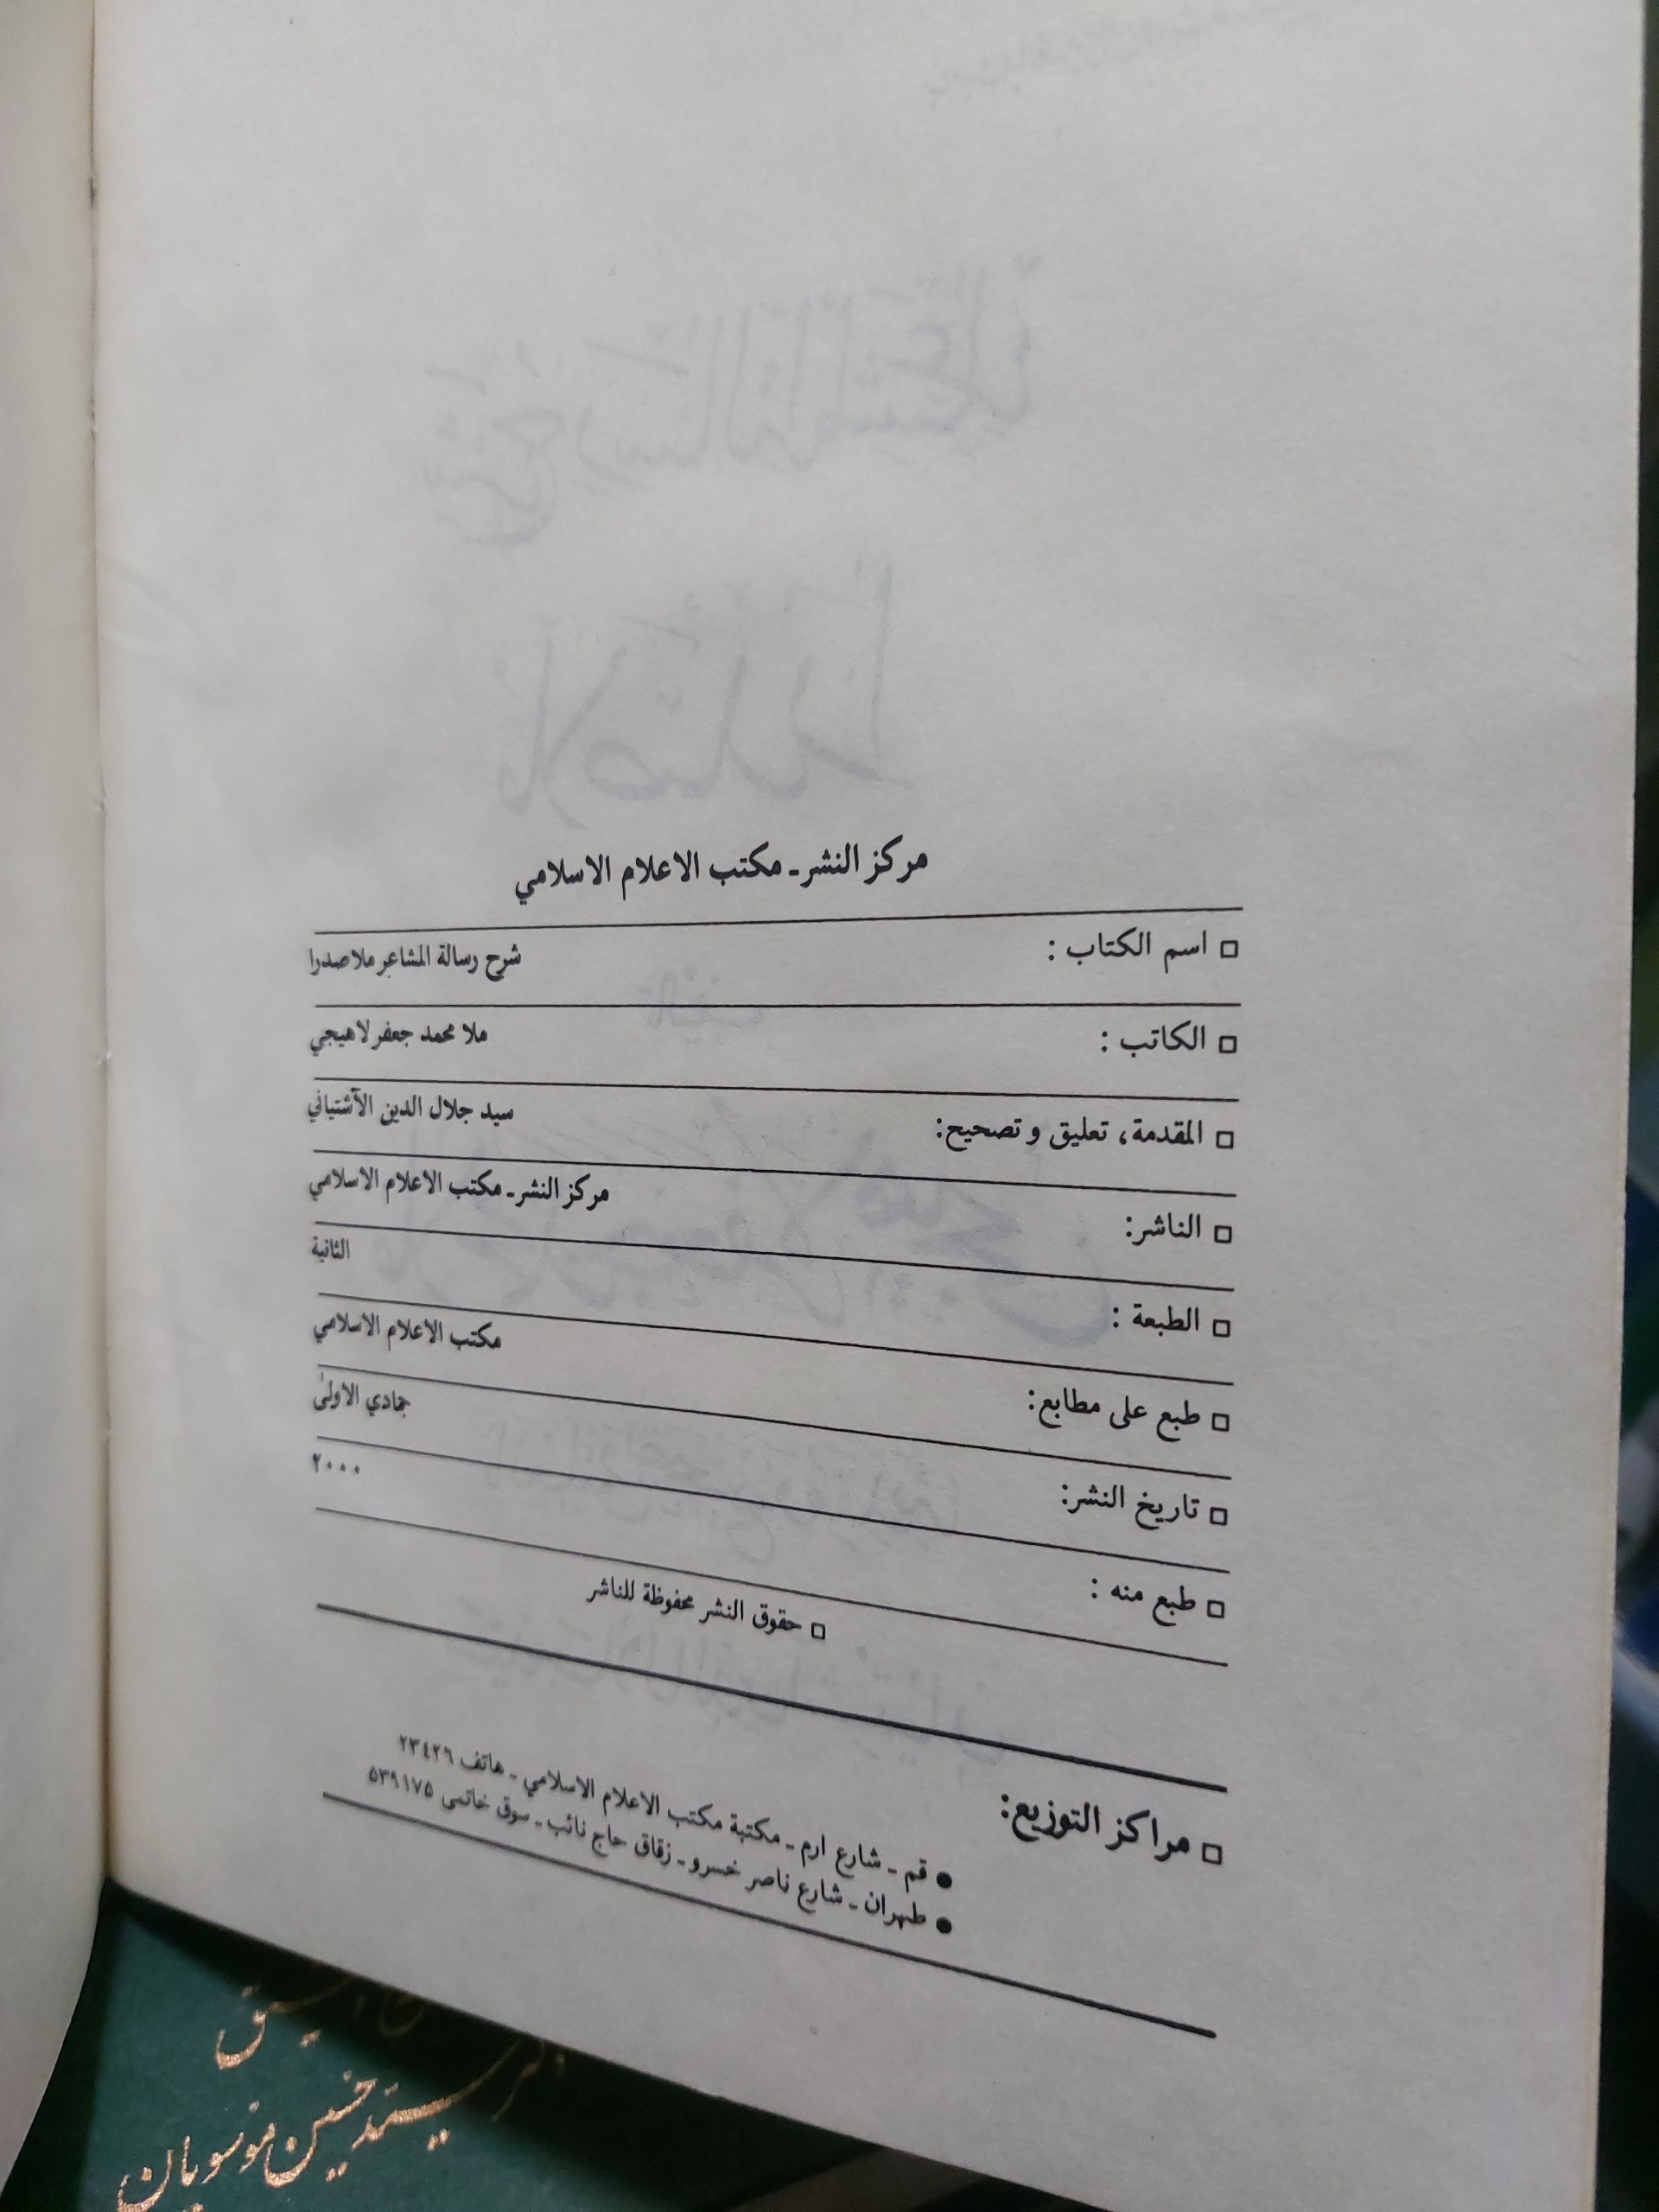 مركز النشر ـ مكتب الاعلام الاسلامي
□ اسم الكتاب : شرح رسالة المشاعر ملاصدرا
□ الكاتب : ملا محمد جعفر لاهيجي
□ المقدمة، تعليق و تصحيح: سيد جلال الدين الآشتياني
□ الناشر: مركز النشر ـ مكتب الاعلام الاسلامي
□ الطبعة : الثانية
□ طبع على مطابع: مكتب الاعلام الاسلامي
□ تاريخ النشر: جمادي الاولىٰ
□ طبع منه : ٢٠٠٠
□ حقوق النشر محفوظة للناشر
□ مراكز التوزيع:
● قم ـ شارع ارم ـ مكتبة مكتب الاعلام الاسلامي ـ هاتف ٢٣٤٢٦
● طهران ـ شارع ناصر خسرو ـ زقاق حاج نائب ـ سوق خاتمى ٥٣٩١٧٥
سید حسین موسویان